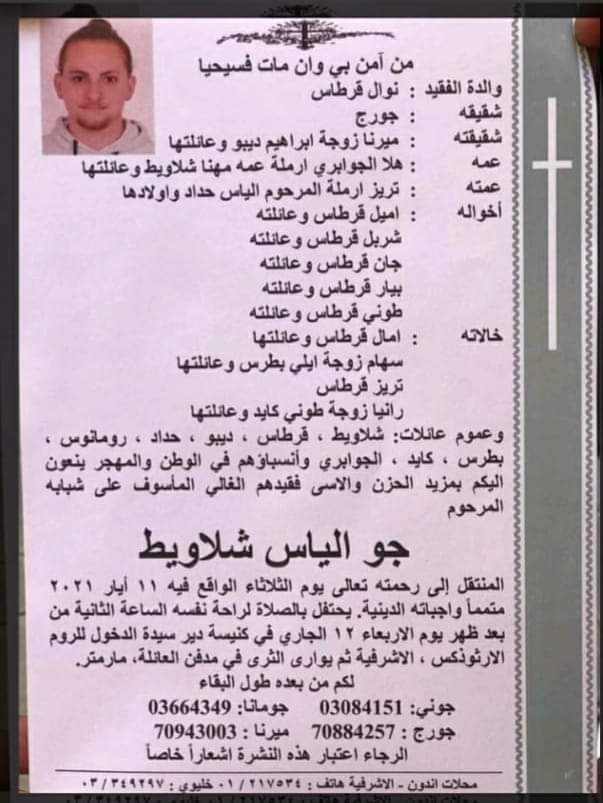 من آمن بي وان مات فسيحيا
والدة الفقيد : نوال قرطاس
شقيقه : جورج
شقيقته : ميرنا زوجة ابراهيم ديبو وعائلتها
عمه : هلا الجوابري ارملة عمه مهنا شلاويط وعائلتها
عمته : تريز ارملة المرحوم الياس حداد واولادها
أخواله : اميل قرطاس وعائلته
شربل قرطاس وعائلته
جان قرطاس وعائلته
بيار قرطاس وعائلته
طوني قرطاس وعائلته
خالاته : امال قرطاس وعائلتها
سهام زوجة ايلي بطرس وعائلتها
تريز قرطاس
رانيا زوجة طوني كايد وعائلتها
وعموم عائلات: شلاويط ، قرطاس ، ديبو ، حداد ، رومانوس ،
بطرس ، كايد ، الجوابري وأنسباؤهم في الوطن والمهجر ينعون
اليكم بمزيد الحزن والاسى فقيدهم الغالي المأسوف على شبابه
المرحوم
جو الياس شلاويط
المنتقل إلى رحمته تعالى يوم الثلاثاء الواقع فيه ١١ أيار ٢٠٢١
متمماً واجباته الدينية. يحتفل بالصلاة لراحة نفسه الساعة الثانية من
بعد ظهر يوم الاربعاء ١٢ الجاري في كنيسة دير سيدة الدخول للروم
الارثوذكس ، الاشرفية ثم يوارى الثرى في مدفن العائلة، مارمتر.
لكم من بعده طول البقاء
جوني: 03084151 جومانا: 03664349
جورج : 70884257 ميرنا : 70943003
الرجاء اعتبار هذه النشرة اشعاراً خاصاً
محلات اندون - الاشرفية هاتف : ٠١/٢١٧٥٣٤ خليوي : ٠٣/٣٤٩٢٩٧
محلات اندون - الاشرفية هاتف : ٠١/٢١٧٥٣٤ خليوي : ٠٣/٣٤٩٢٩٧